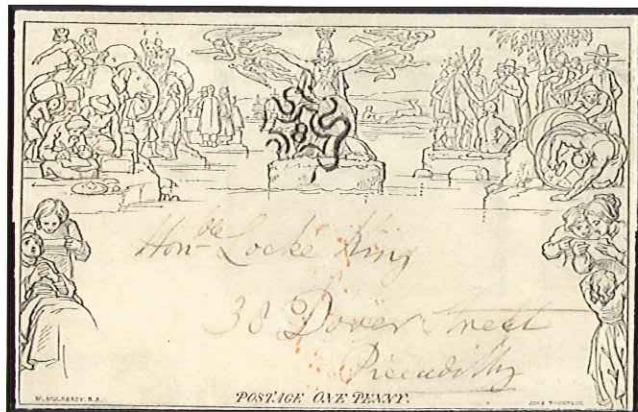 Honble Locke King
38 Dover Street
Piccadilly
W. MULREADY. R.A.
POSTAGE ONE PENNY.
JOHN THOMPSON